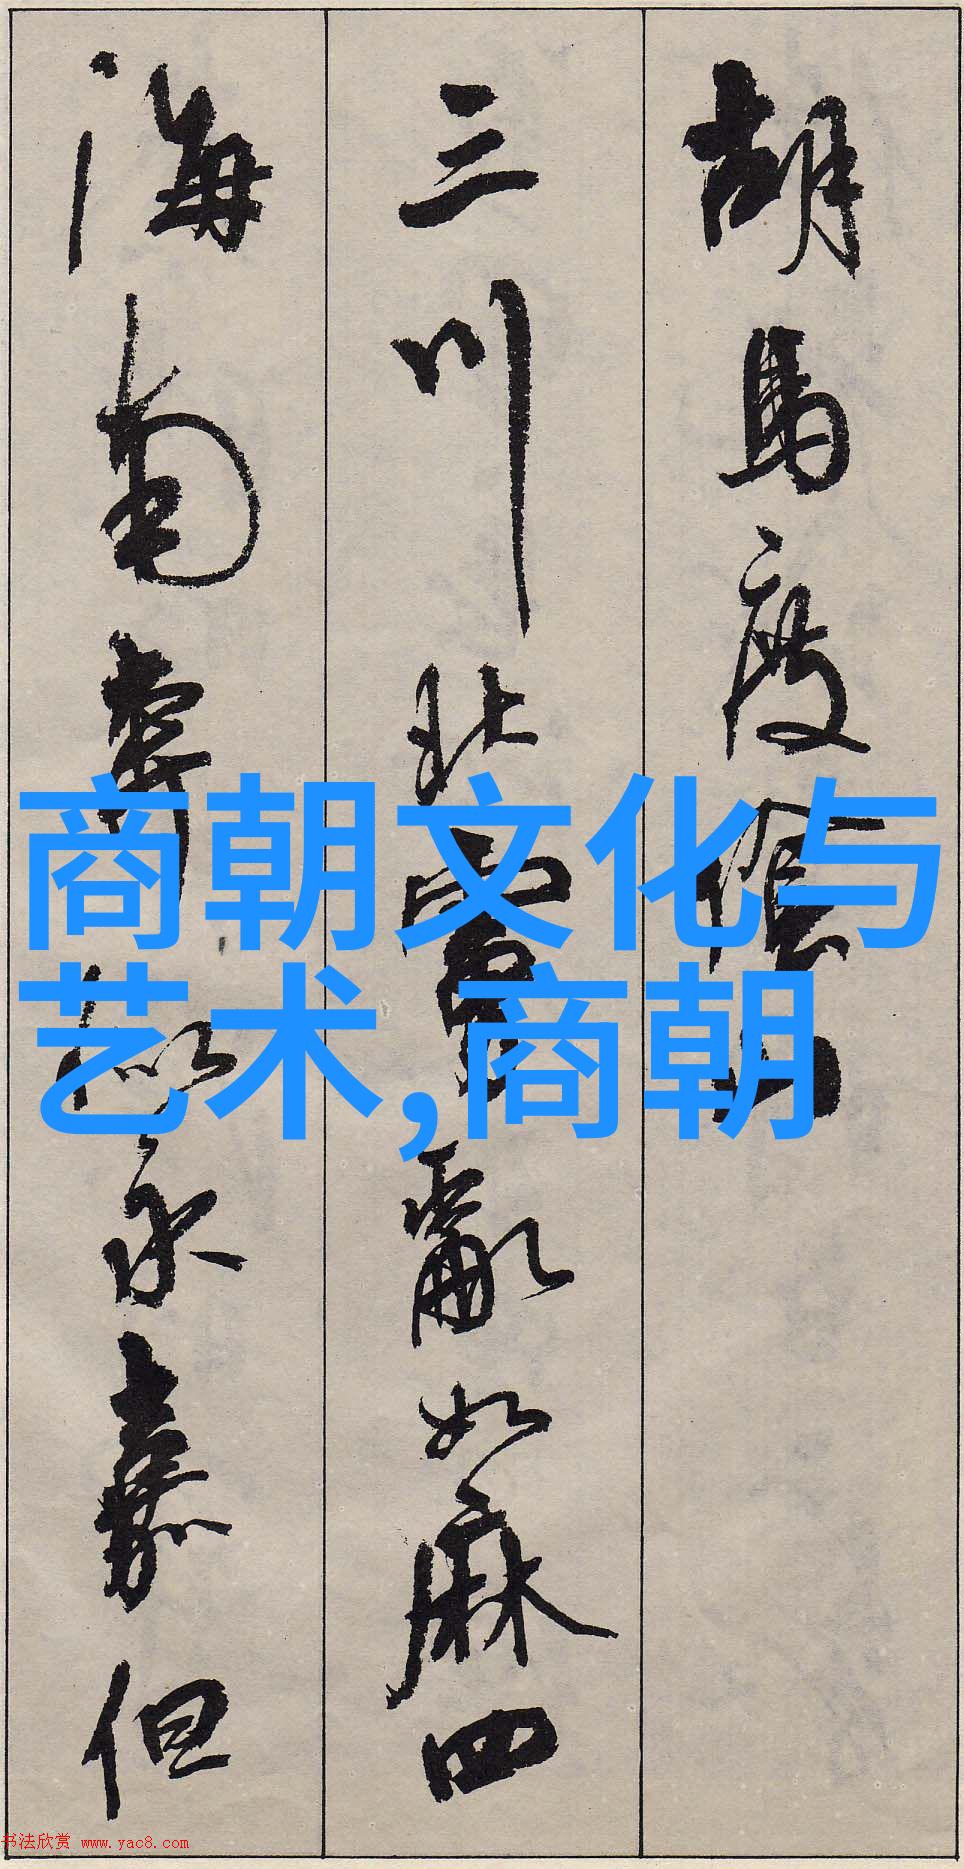 胡马度
三川北虏乱如麻四
海南奔似永嘉但
商朝文化与
艺术,商朝
书法欣赏 www.yac8.com